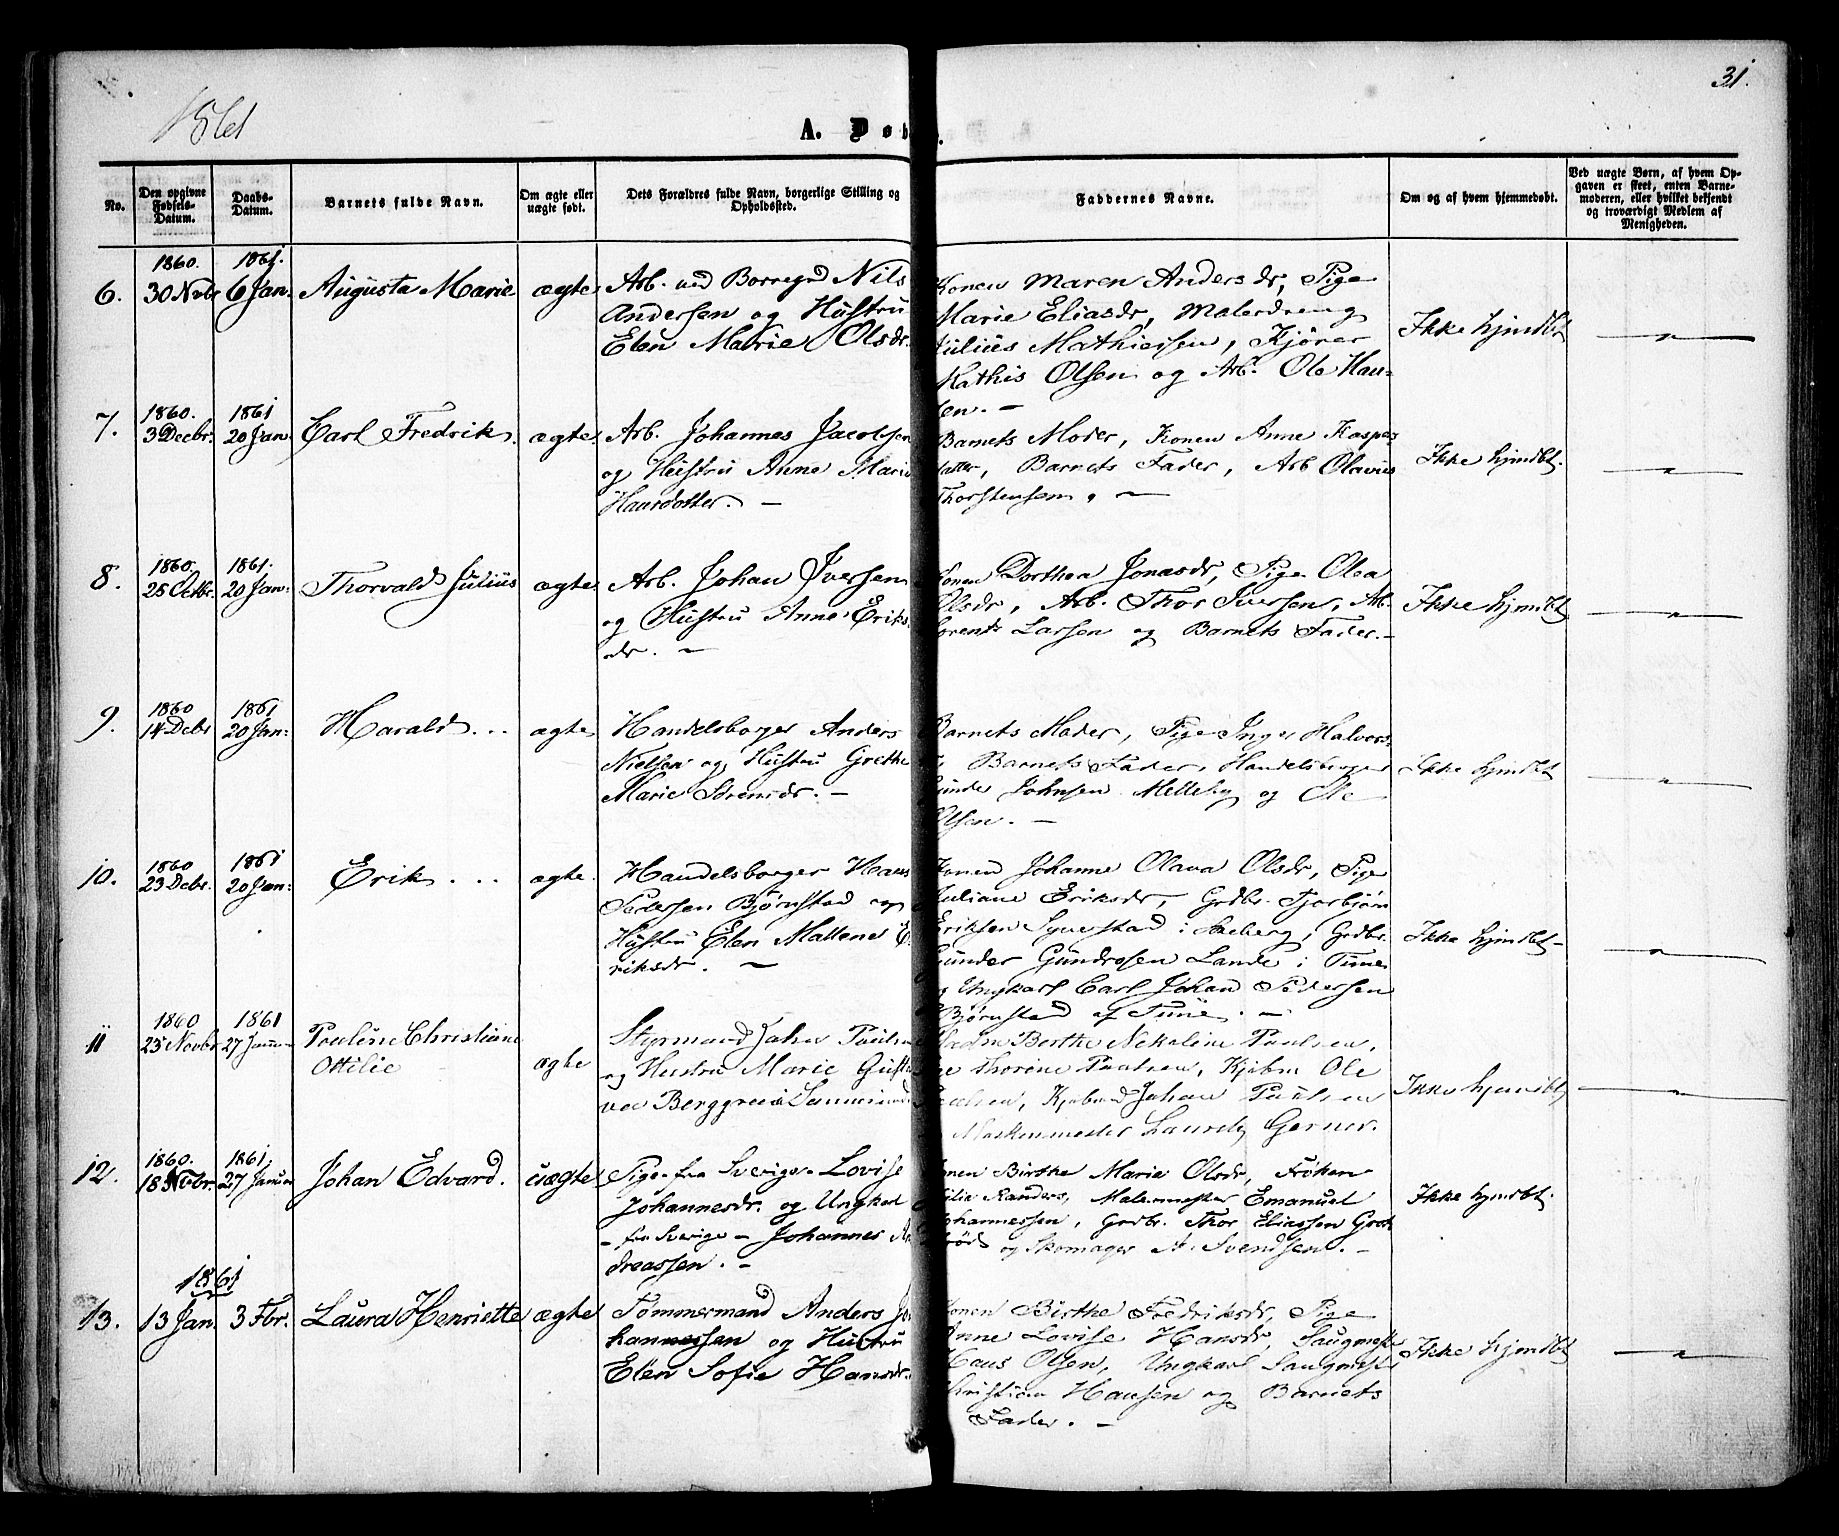 31.
1861
A. Døb
No.
Den opgivne Fødsels-Datum.
Daabs-Datum.
Barnets fulde Navn.
Om ægte eller uægte født.
Dets Forældres fulde Navn, borgerlige Stilling og Opholdssted.
Faddernes Navne.
Om og af hvem hjemmedøbt.
Ved uægte Børn, af hvem Opgaven er skeet, enten Barnemoderen, eller hvilket bekjendt og troværdigt Medlem af Menigheden.
1860. 1861.
6. 30 Nvbr 6 Jan. Augusta Marie ægte Arb. ved Borregrd Nils Konen Maren Andersdr, Pige
Andersen og Hustru Marie Eliasdr, Malerdreng
Elen Marie Olsdr. Julius Mathiessen, Kjører Ikke hjmdbt
Mathis Olsen og Arb. Ole Han-
sen. -
1860. 1861
7. 3 Decbr. 20 Jan. Carl Fredrik. ægte. Arb. Johannes Jacobsen Barnets Moder, Konen Anne Kaspers
og Hustru Anne Marie datter, Barnets Fader, Arb Olavius Ikke hjmdbt.
Hansdotter. - Thorstensen. -
1860. 1861.
8. 25 Octbr. 20 Jan. Thorvald Julius ægte. Arb. Johan Iversen Konen Dorthea Jonasdr, Pige Olea
og Hustru Anne Eriks- Olsdr, Arb. Thor Iversen, Arb. Ikke hjmdbt
dr. - Lorents Larsen og Barnets Fader. -
1860 1861
9. 14 Debr 20 Jan. Harald... ægte Handelsborger Anders Barnets Moder, Pige Inger Halvors-
Nielsen og Hustru Grethe Barnets Fader, Handelsborger Ikke hjmdbt
Marie Sørensdr. - Gunder Johnsen Melleby og Ole
Olsen. -
1860 1861
10. 23 Debr. 20 Jan. Erik... ægte. Handelsborger Hans Konen Johanne Olava Olsdr, Pige
Pedersen Bjørnstad og Juliane Eriksdr, Grdbr. Torbjørn
Hustru Elen Mallene E- Eriksen Syverstad i Skeberg, Grdbr. Ikke hjmdbt-
riksdr. - Gunder Gundersen Lande i Tune
og Ungkarl Carl Johan Pedersen
Bjørnstad af Tune. -
1860 1861
11 25 Novbr 27 Januar Pauline Christiane ægte Styrmand Johan Paulsen Madm Berthe Nekoline Paulsen,
Ottilie og Hustru Marie Gusta Pige Thorine Paulsen, Kjøbm Ole
va Berggreen Paulsen, Kjøbmd Johan Paulsen Ikke hjemdbt
Maskinmester Laurits Gerner.
1860. 1861.
12. 18 Nvbr. 27 Januar Johan Edvard. uægte Pige fra Sverige Lovise Konen Birthe Marie Olsdr, Frøken
Johannesdr. og Ungkarl Randers, Malermester Emanuel Ikke hjmdbt.
- fra Sverige - Johannes An Johannessen, Grdbr. Thor Eliassen Grot
dreassen. - rød og Skomager A. Svendsen. -
1861
13. 13 Jan. 3 Fbr. Laura Henriette ægte Tømmermand Anders Jo Konen Birthe Fredriksdr, Pige
hannessen og Hustru Anne Lovise Hansdr, Saugmester
Elen Sofie Hansdr. Hans Olsen, Ungkarl Saugmest. Ikke hjmdbt
Christian Hansen og Barnets
Fader. -